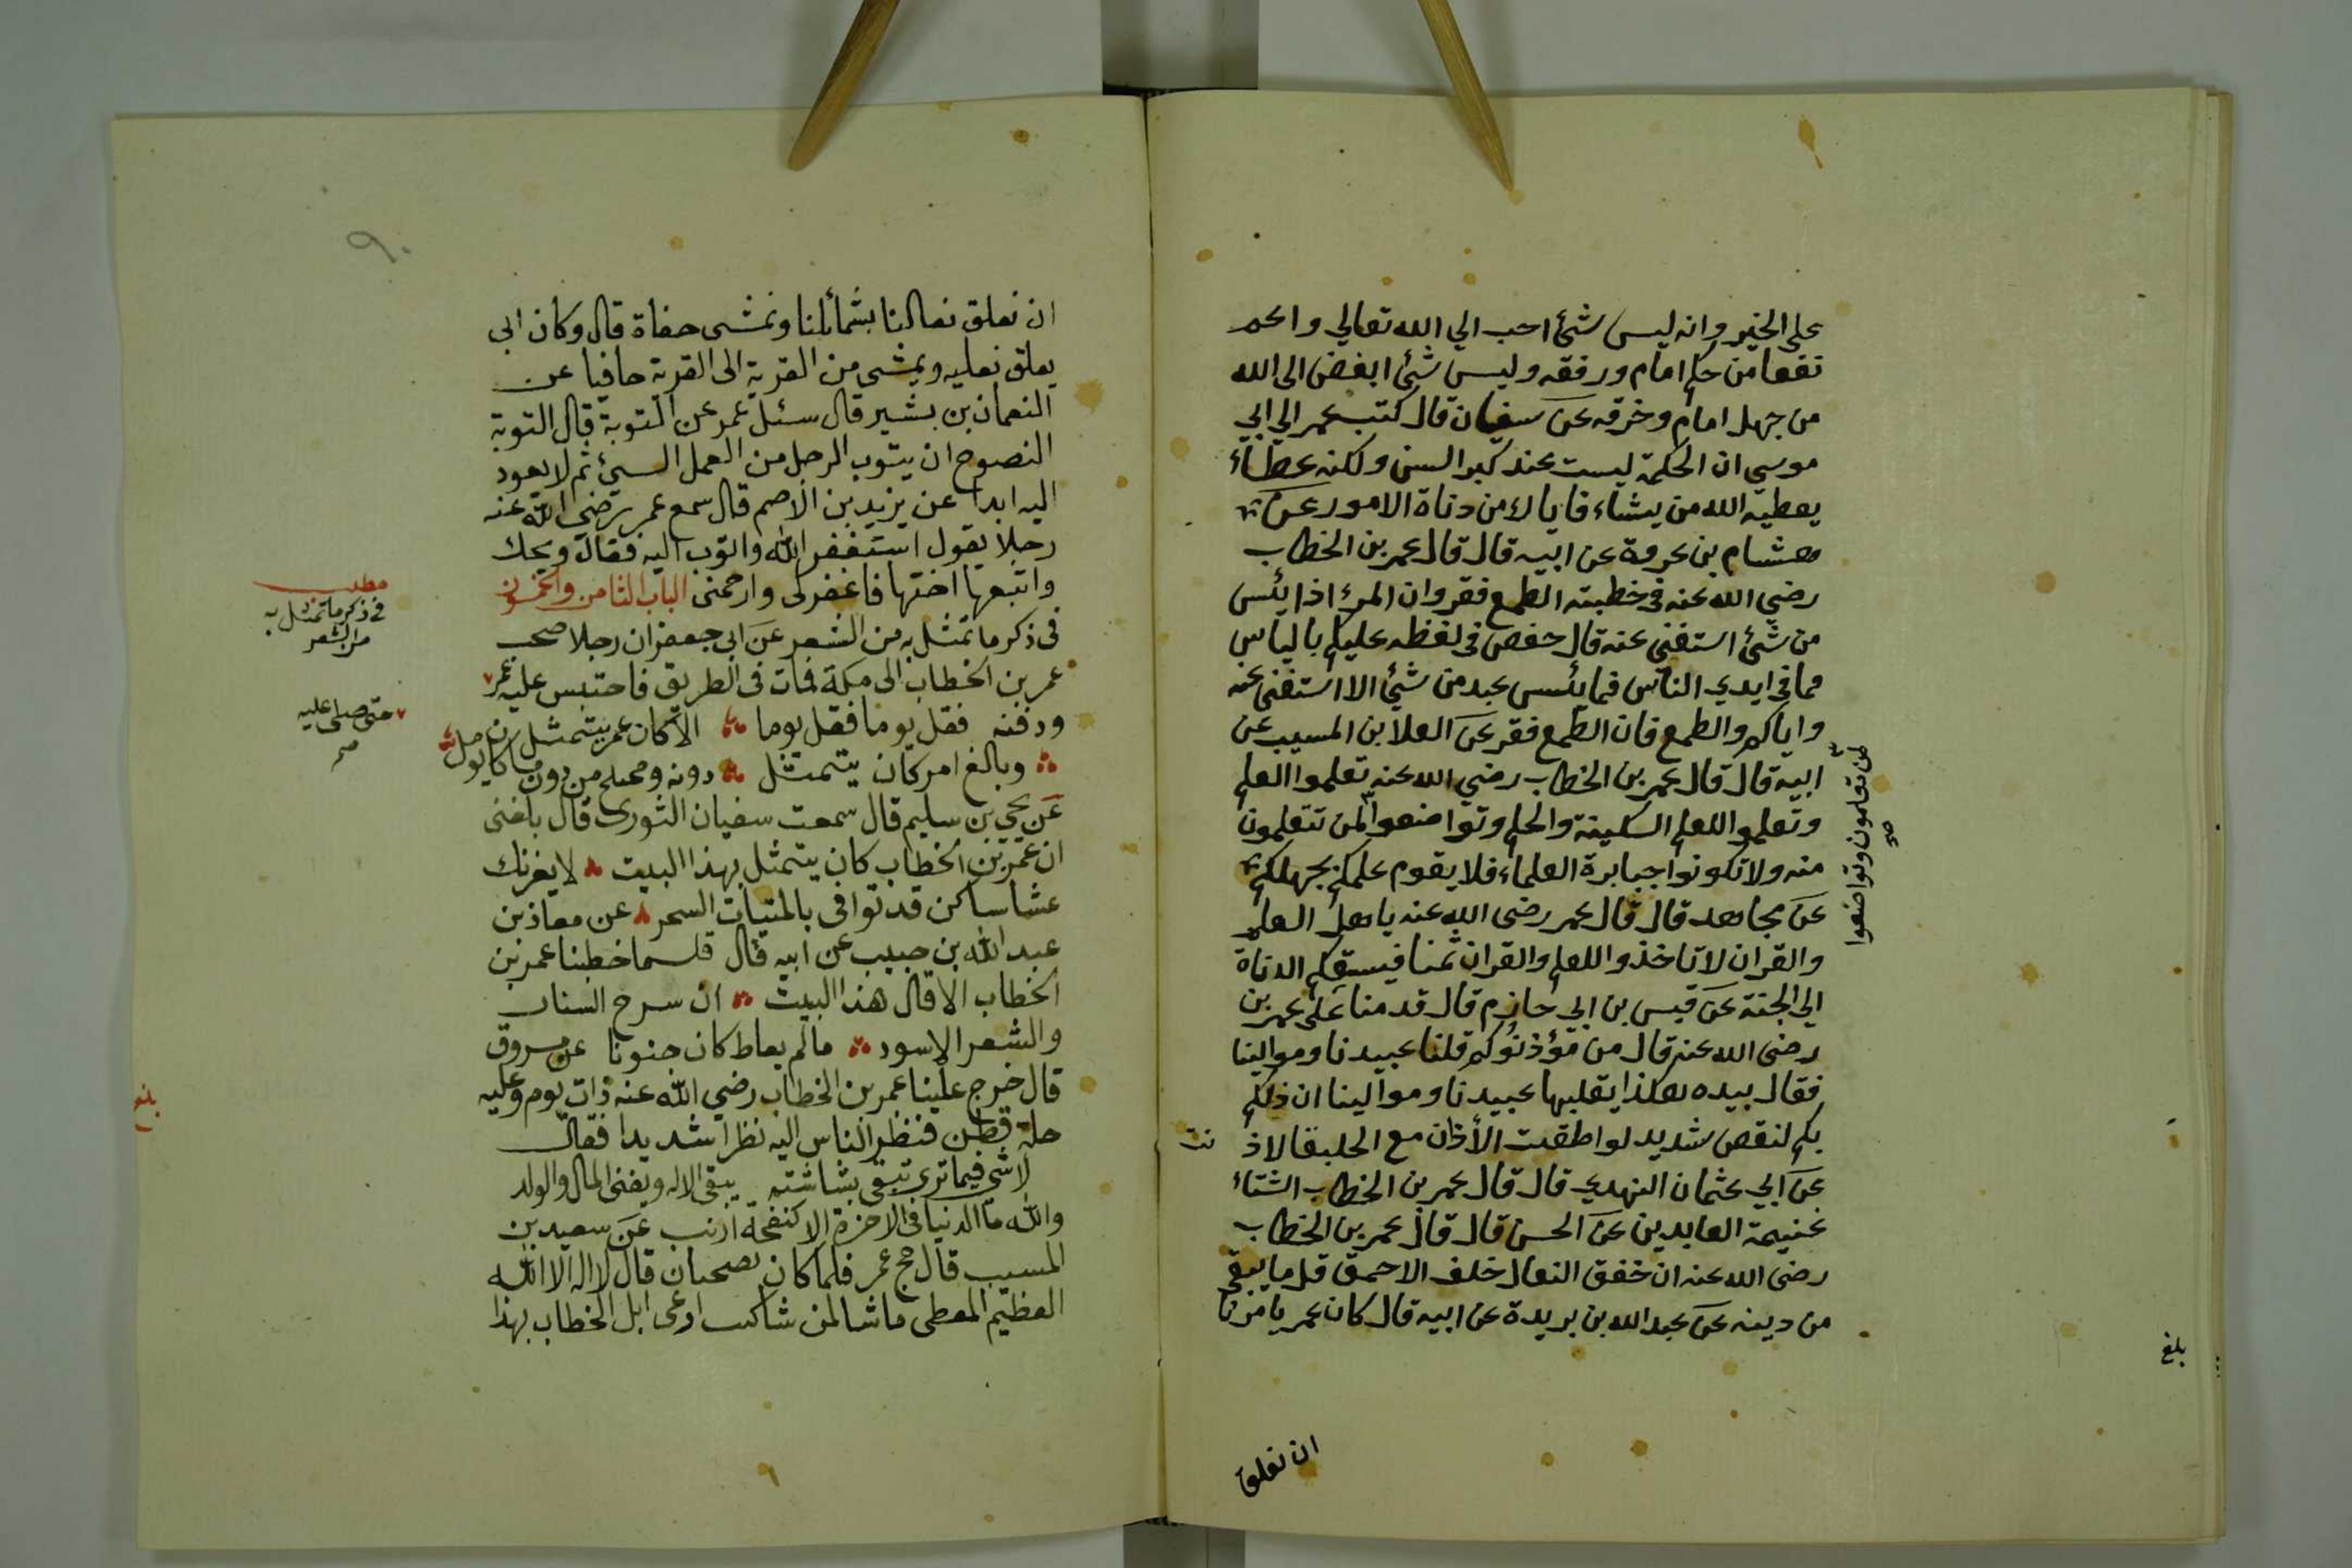 على الخير وانه ليس شئ احب الي الله تعالي واعم
نفعا من حلم امام ورفقه وليس شئ ابغض الى الله
من جهل امام وخرقه عن سفيان قال كتب عمر الي ابي
موسي ان الحكمة ليست عند كبر السن ولكنه عطاء
يعطيه الله من يشاء فاياك من دناة الامور عن
هشام بن عروة عن ابيه قال قال عمر بن الخطاب
رضي الله عنه في خطبته الطمع فقر وان المرء اذا يئس
من شئ استغني عنه قال حفص في لفظه عليكم بالياس
مما في ايدي الناس فما يئس عبد من شئ الا استغنى عنه
واياكم والطمع فان الطمع فقر عن العلا بن المسيب عن
ابيه قال قال عمر بن الخطاب رضي الله عنه تعلموا العلم
وتعلموا للعلم السكينة والحلم وتواضعوا لمن تتعلمون
منه ولا تكونوا جبابرة العلماء فلا يقوم علمكم بجهلكم
عن مجاهد قال قال عمر رضى الله عنه ياهل العلم
والقران لا تاخذوا للعلم والقران ثمنا فيسبقكم الدناة
الي الجنة عن قيس بن ابي حازم قال قدمنا على عمر بن
رضى الله عنه قال من مؤذنوكم قلنا عبيدنا وموالينا
فقال بيده هكذا يقلبها عبيدنا وموالينا ان ذلكم
بكم لنقص شديد لو اطقت الأذان مع الخليفا لاذ
نت
عن ابي عثمان النهدي قال قال عمر بن الخطاب الشتاء
غنيمة العابدين عن الحسن قال قال عمر بن الخطاب
رضى الله عنه ان خفق النعال خلف الاحمق قل ما يبقى
من دينه عن عبد الله بن بريدة عن ابيه قال كان عمر يامرنا
لمن تعلمون وتواضعوا
صح
بلغ
ان نعلق
٩٠
ان نعلق نعالنا بشمائلنا ونمشى حفاة قال وكان ابي
يعلق نعليه ويمشى من القرية الى القرية حافيا عن
النعمان بن بشير قال سئل عمر عن التوبة قال التوبة
النصوح ان يتوب الرجل من العمل السيئ ثم لا يعود
اليه ابدا عن يزيد بن الاصم قال سمع عمر رضي الله عنه
رجلا يقول استغفر الله واتوب اليه فقال ويحك
واتبعها اختها فاغفرلى وارحمنى الباب الثامن والخمسون
فى ذكر ما تمثل به من الشعر عن ابى جعفر ان رجلا صحب
عمر بن الخطاب الى مكة فمات فى الطريق فاحتبس عليه عمر
ودفنه فقل يوما فقل يوما الا كان عمر يتمثل
وبالغ امر كان يتمثل دونه ومحتلج من دون ما كان يامل
عن يحي بن سليم قال سمعت سفيان الثورى قال بلغنى
ان عمر بن الخطاب كان يتمثل بهذا البيت لا يغرنك
عشا ساكن قد توافى بالمنيات السحر عن معاذ بن
عبد الله بن حبيب عن ابيه قال قلما خطبنا عمر بن
الخطاب الا قال هذا البيت ان سرح الشباب
والشعر الاسود مالم يعاط كان جنونا عن مسروق
قال خرج علينا عمر بن الخطاب رضي الله عنه ذات يوم وعليه
حلة قطن فنظر الناس اليه نظرا شديدا فقال
لا شى فيما ترى تبقى بشاشته يبقى الاله ويفنى المال والولد
والله ما الدنيا في الاخرة الا كنفخة ارنب عن سعيد بن
المسيب قال حج عمر فلما كان بضجنان قال لا اله الا الله
العظيم المعطى ما شا لمن شا كنت ارعى ابل الخطاب بهذا
مطلب
فى ذكر ما تمثل به
من الشعر
حتى صلى عليه
صح
بلغ